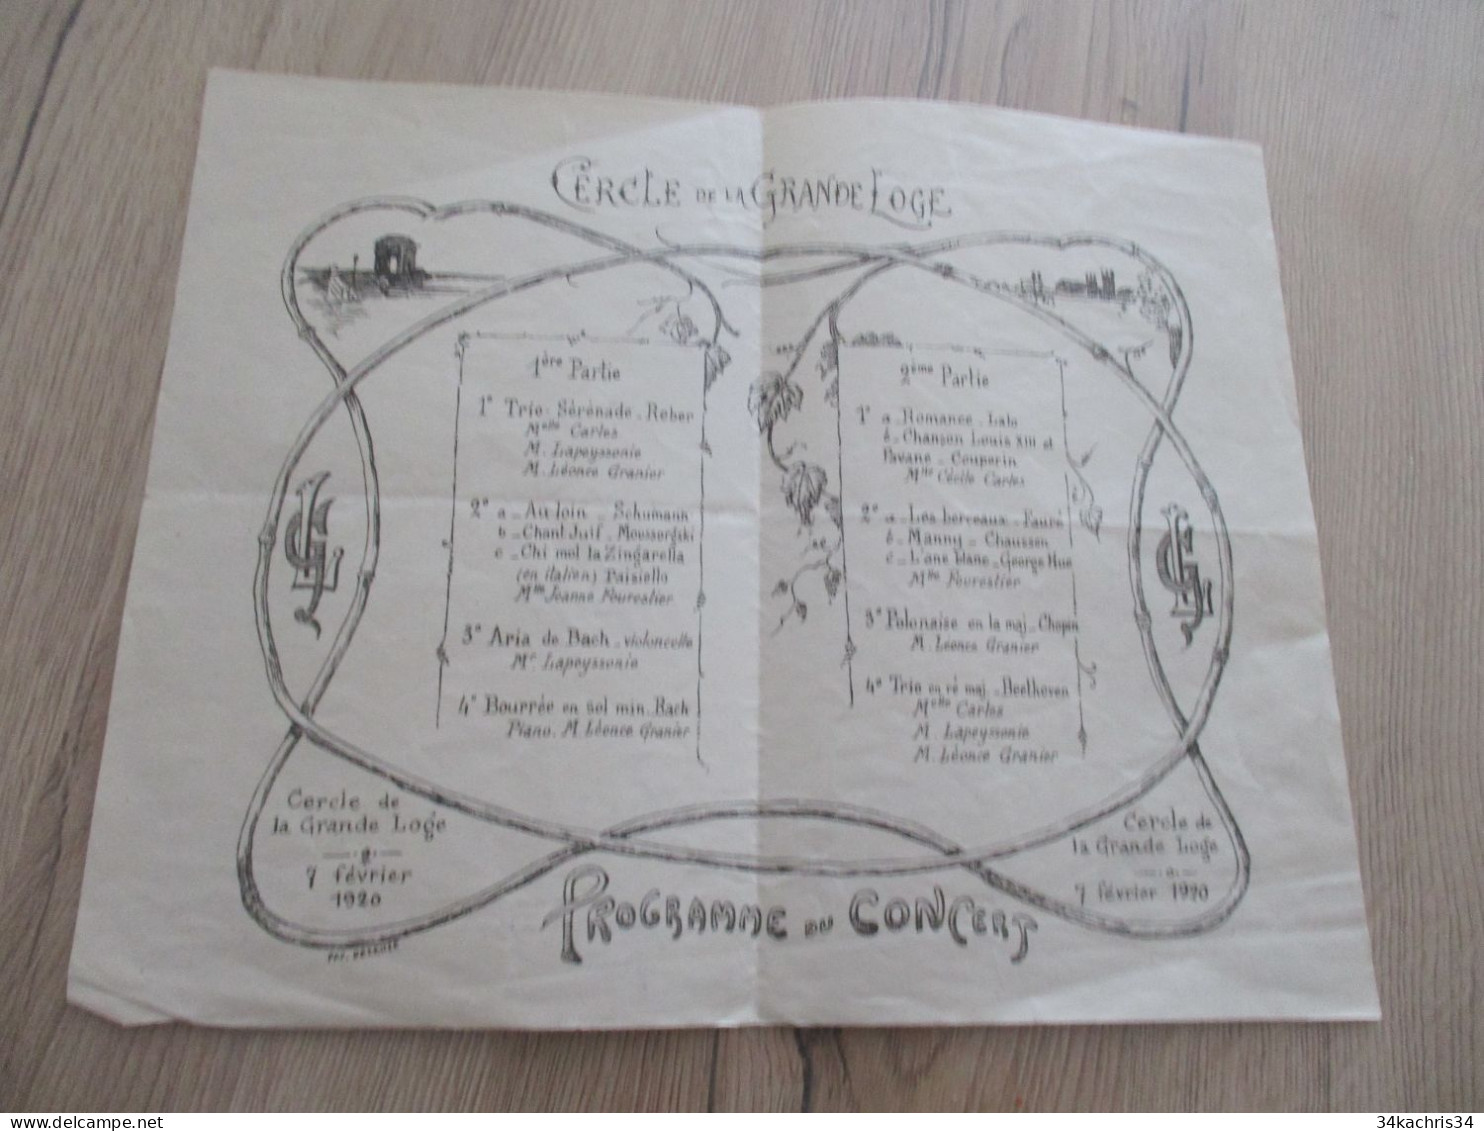 CERCLE DE LA GRANDE LOGE
1ère Partie
1º Trio-Sérénade - Reber
Melle Carles
M. Lapeyssonie
M. Léonce Granier
2º a - Au loin - Schumann
b - Chant Juif - Moussorgski
c - Chi mol la Zingarella
(en italien) Paisiello
Mme Jeanne Fourestier
3º Aria de Bach - violoncelle
Mr. Lapeyssonie
4º Bourrée en sol min. Bach
Piano. M. Léonce Granier
2ème Partie
1º a - Romance - Lalo
b - Chanson Louis XIII et
Pavane - Couperin
Mlle Cécile Carles
2º a - Les berceaux - Fauré
b - Nanny - Chausson
c - L'ane blanc - George Hue
Mme Fourestier
3º Polonaise en la maj - Chopin
M. Léonce Granier
4º Trio en ré maj - Beethoven
Melle Carles
M. Lapeyssonie
M. Léonce Granier
GL
GL
Cercle de
la Grande Loge
7 février
1920
Cercle de
la Grande Loge
7 février 1920
PROGRAMME DU CONCERT
34kachris34
delcampe.net